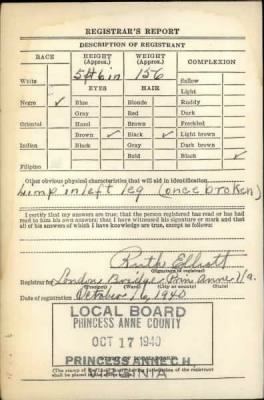 REGISTRAR'S REPORT
DESCRIPTION OF REGISTRANT
RACE HEIGHT (Approx.) WEIGHT (Approx.) COMPLEXION
5 ft 6 in 156
White EYES HAIR Sallow
Light
Negro ✓ Blue Blonde Ruddy
Gray Red Dark
Oriental Hazel Brown Freckled
Brown ✓ Black ✓ Light brown
Indian Black Gray Dark brown
Bald Black ✓
Filipino
Other obvious physical characteristics that will aid in identification
Limp in left leg (once broken)
I certify that my answers are true; that the person registered has read or has had
read to him his own answers; that I have witnessed his signature or mark and that
all of his answers of which I have knowledge are true, except as follows:
Ruth Elliott
(Signature of registrar)
Registrar for London Bridge Prin. Anne Va.
(Precinct) (Ward) (City or county) (State)
Date of registration October 16, 1940
LOCAL BOARD
PRINCESS ANNE COUNTY
OCT 17 1940
PRINCESS ANNE C.H.
VIRGINIA